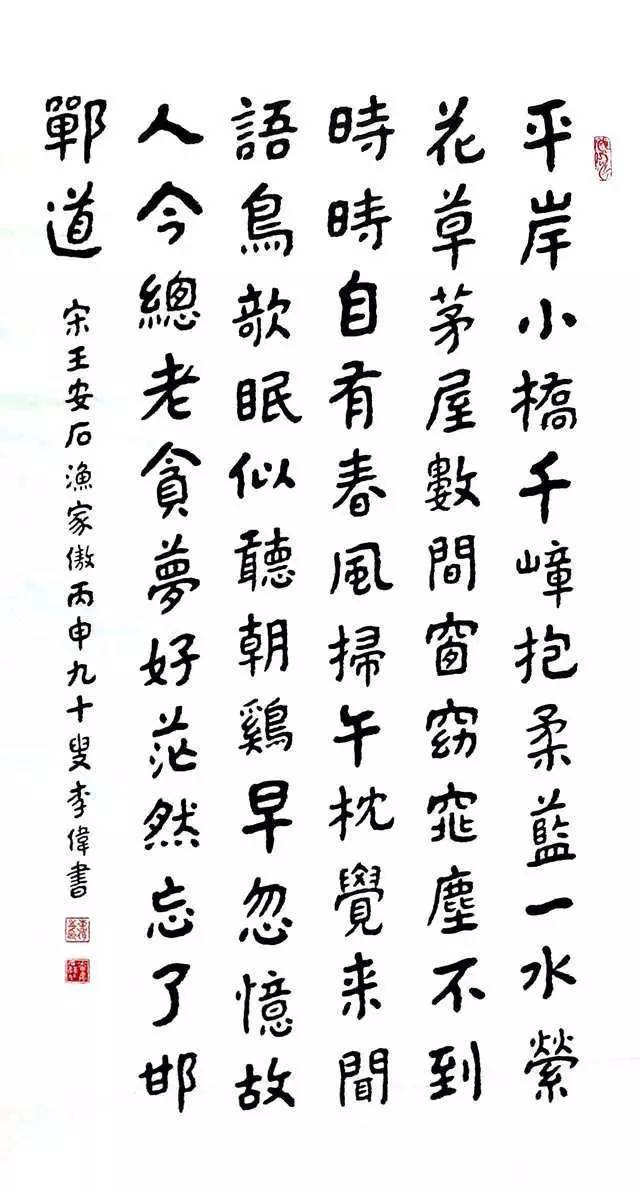 平岸小橋千嶂抱柔藍一水縈
花草茅屋數間窗窈窕塵不到
時時自有春風掃午枕覺来聞
語鳥欹眠似聽朝鷄早忽憶故
人今總老貪夢好茫然忘了邯
鄲道
宋王安石漁家傲丙申九十叟李偉書